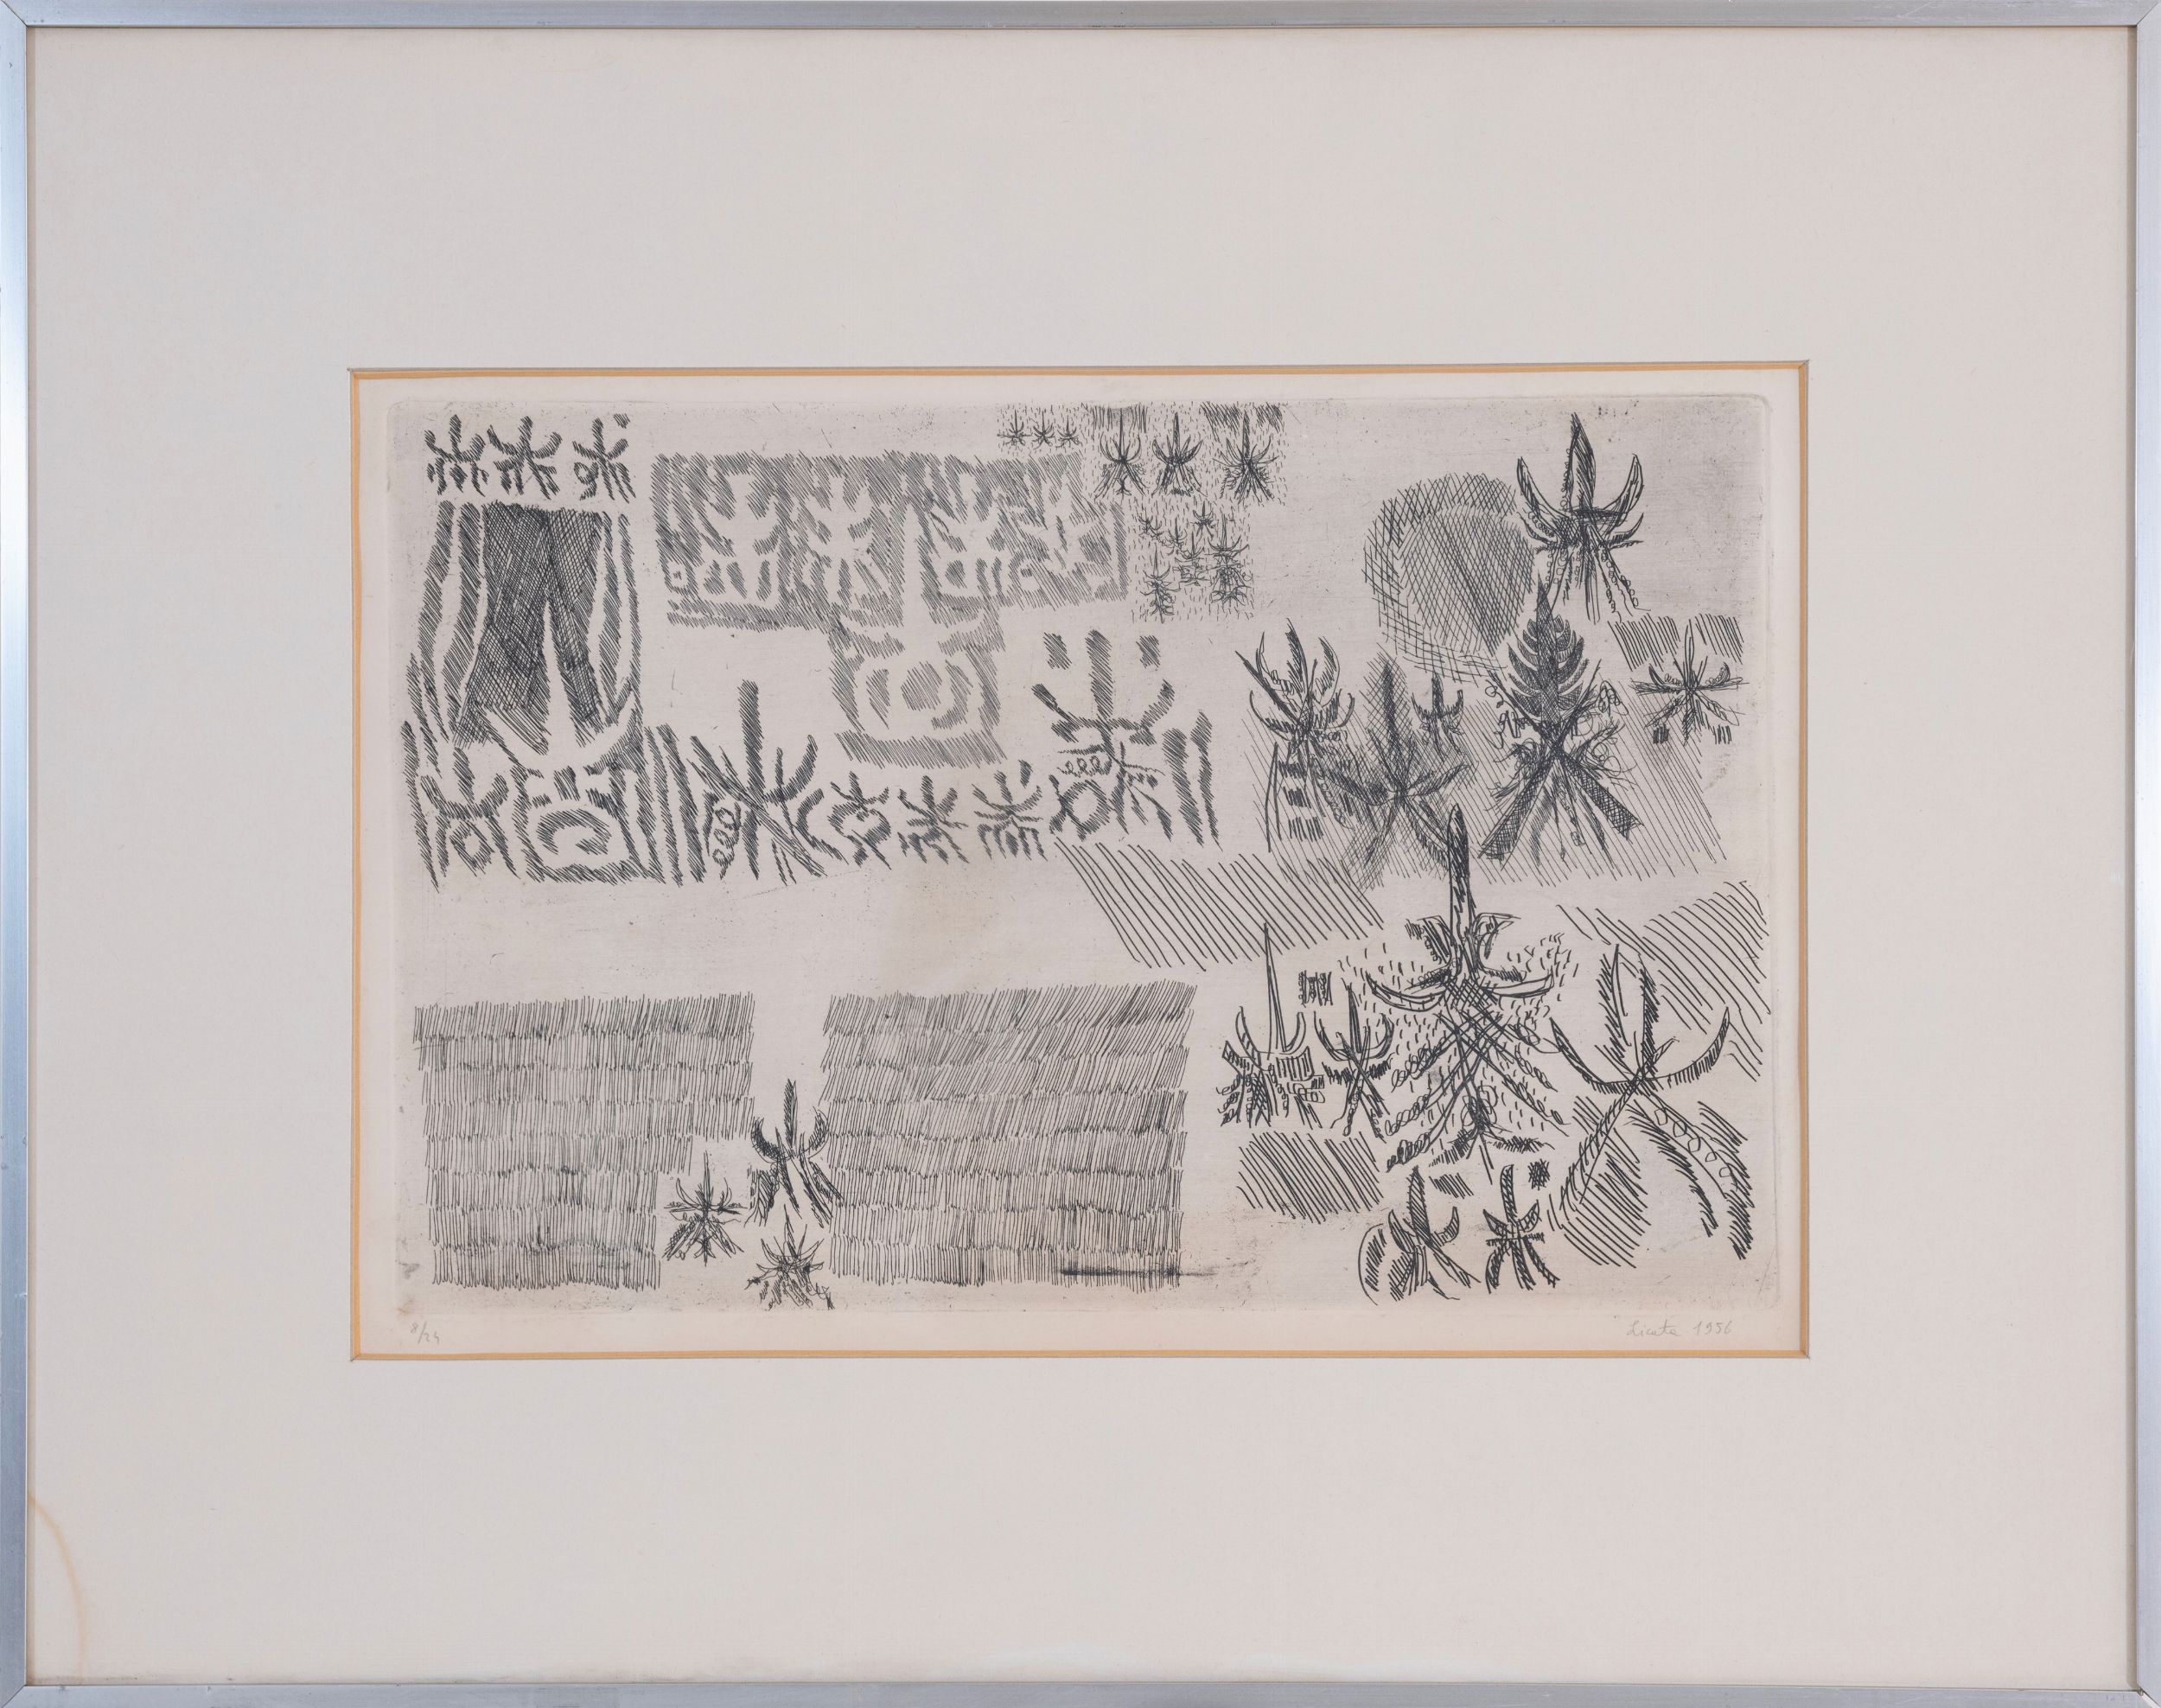 8/24
Licata 1956